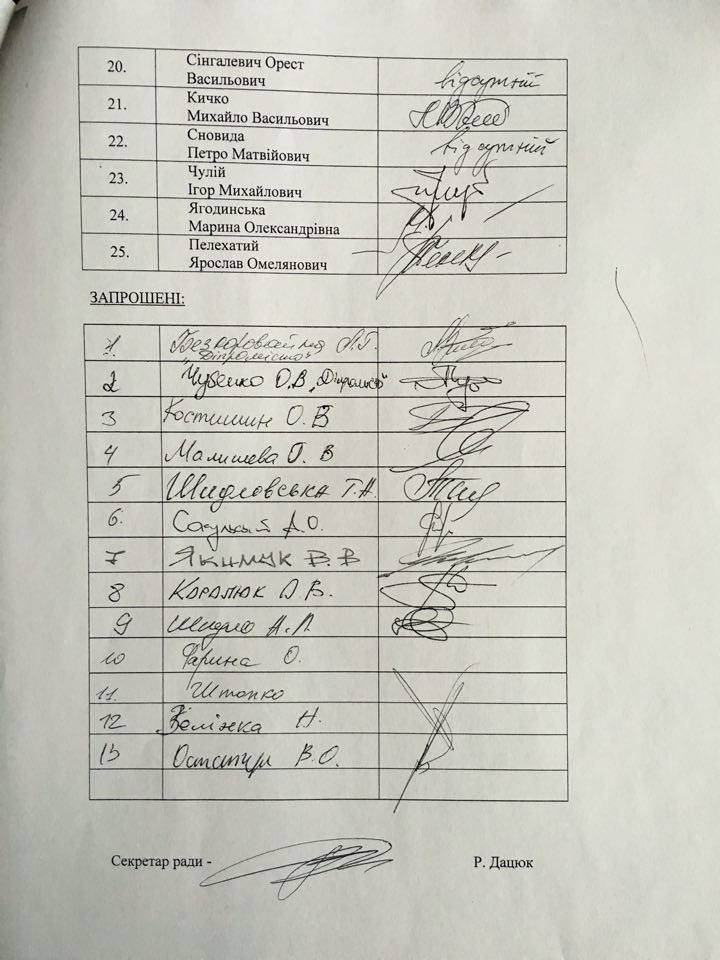 20. Сінгалевич Орест
Васильович відсутній
21. Кичко
Михайло Васильович
22. Сновида
Петро Матвійович відсутній
23. Чулій
Ігор Михайлович
24. Ягодинська
Марина Олександрівна
25. Пелехатий
Ярослав Омелянович
ЗАПРОШЕНІ:
1.
"Діпромісто"
2 Чубенко О.В "Діпромісто"
3 Костишин О.В
4 Малишева Г. В
5 Шидловська Т.А.
6. А.О.
7 Якимчук В.В
8 Королюк В.
9 Шидло А.П.
10 Фарина О.
11. Штопко
12 Н.
13 В.О.
Секретар ради - Р. Дацюк